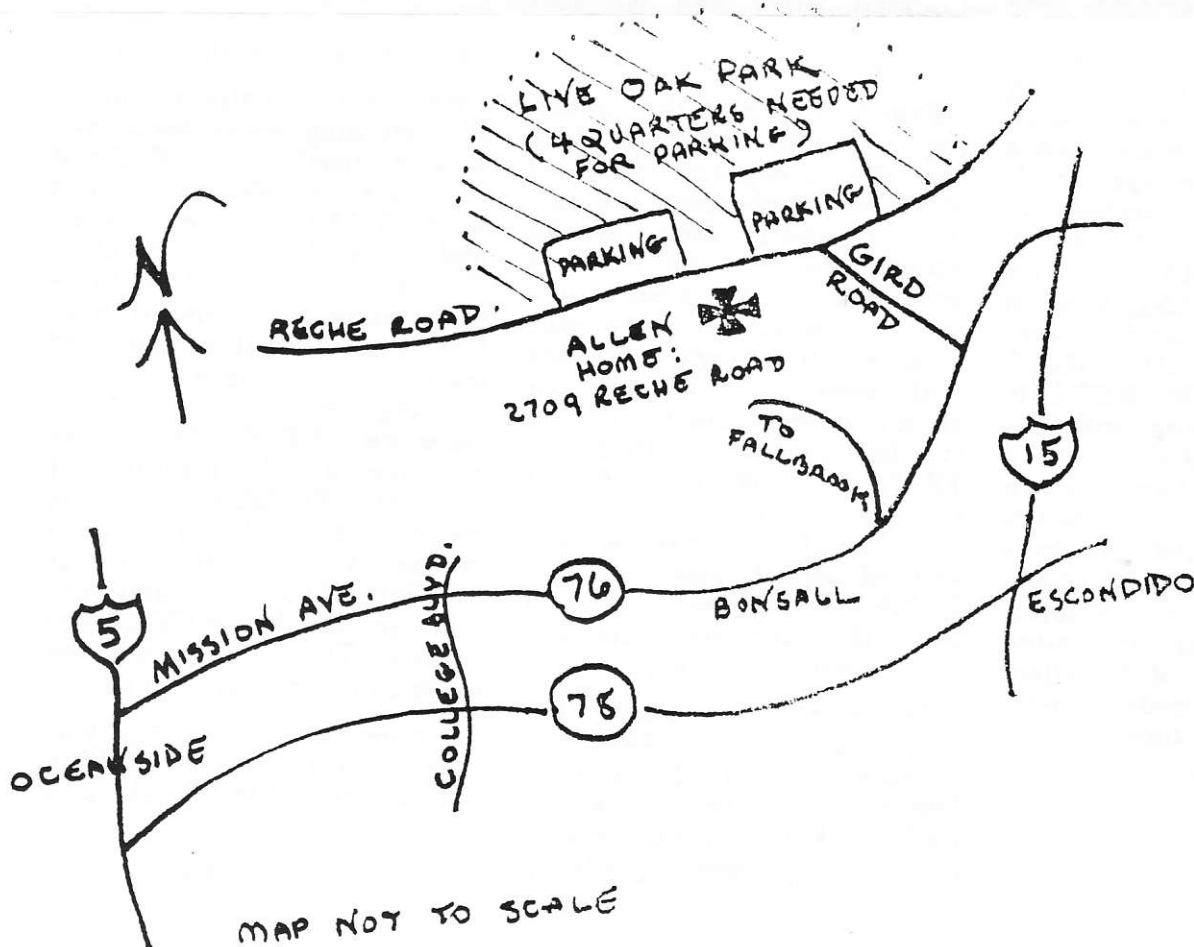 LIVE OAK PARK
(4 QUARTERS NEEDED
FOR PARKING)
PARKING
PARKING
GIRD
ROAD
N
RECHE ROAD.
ALLEN
HOME:
2709 RECHE ROAD
TO
FALLBROOK
15
5
MISSION AVE.
COLLEGE BLVD.
76
BONSALL
ESCONDIDO
78
OCEANSIDE
MAP NOT TO SCALE